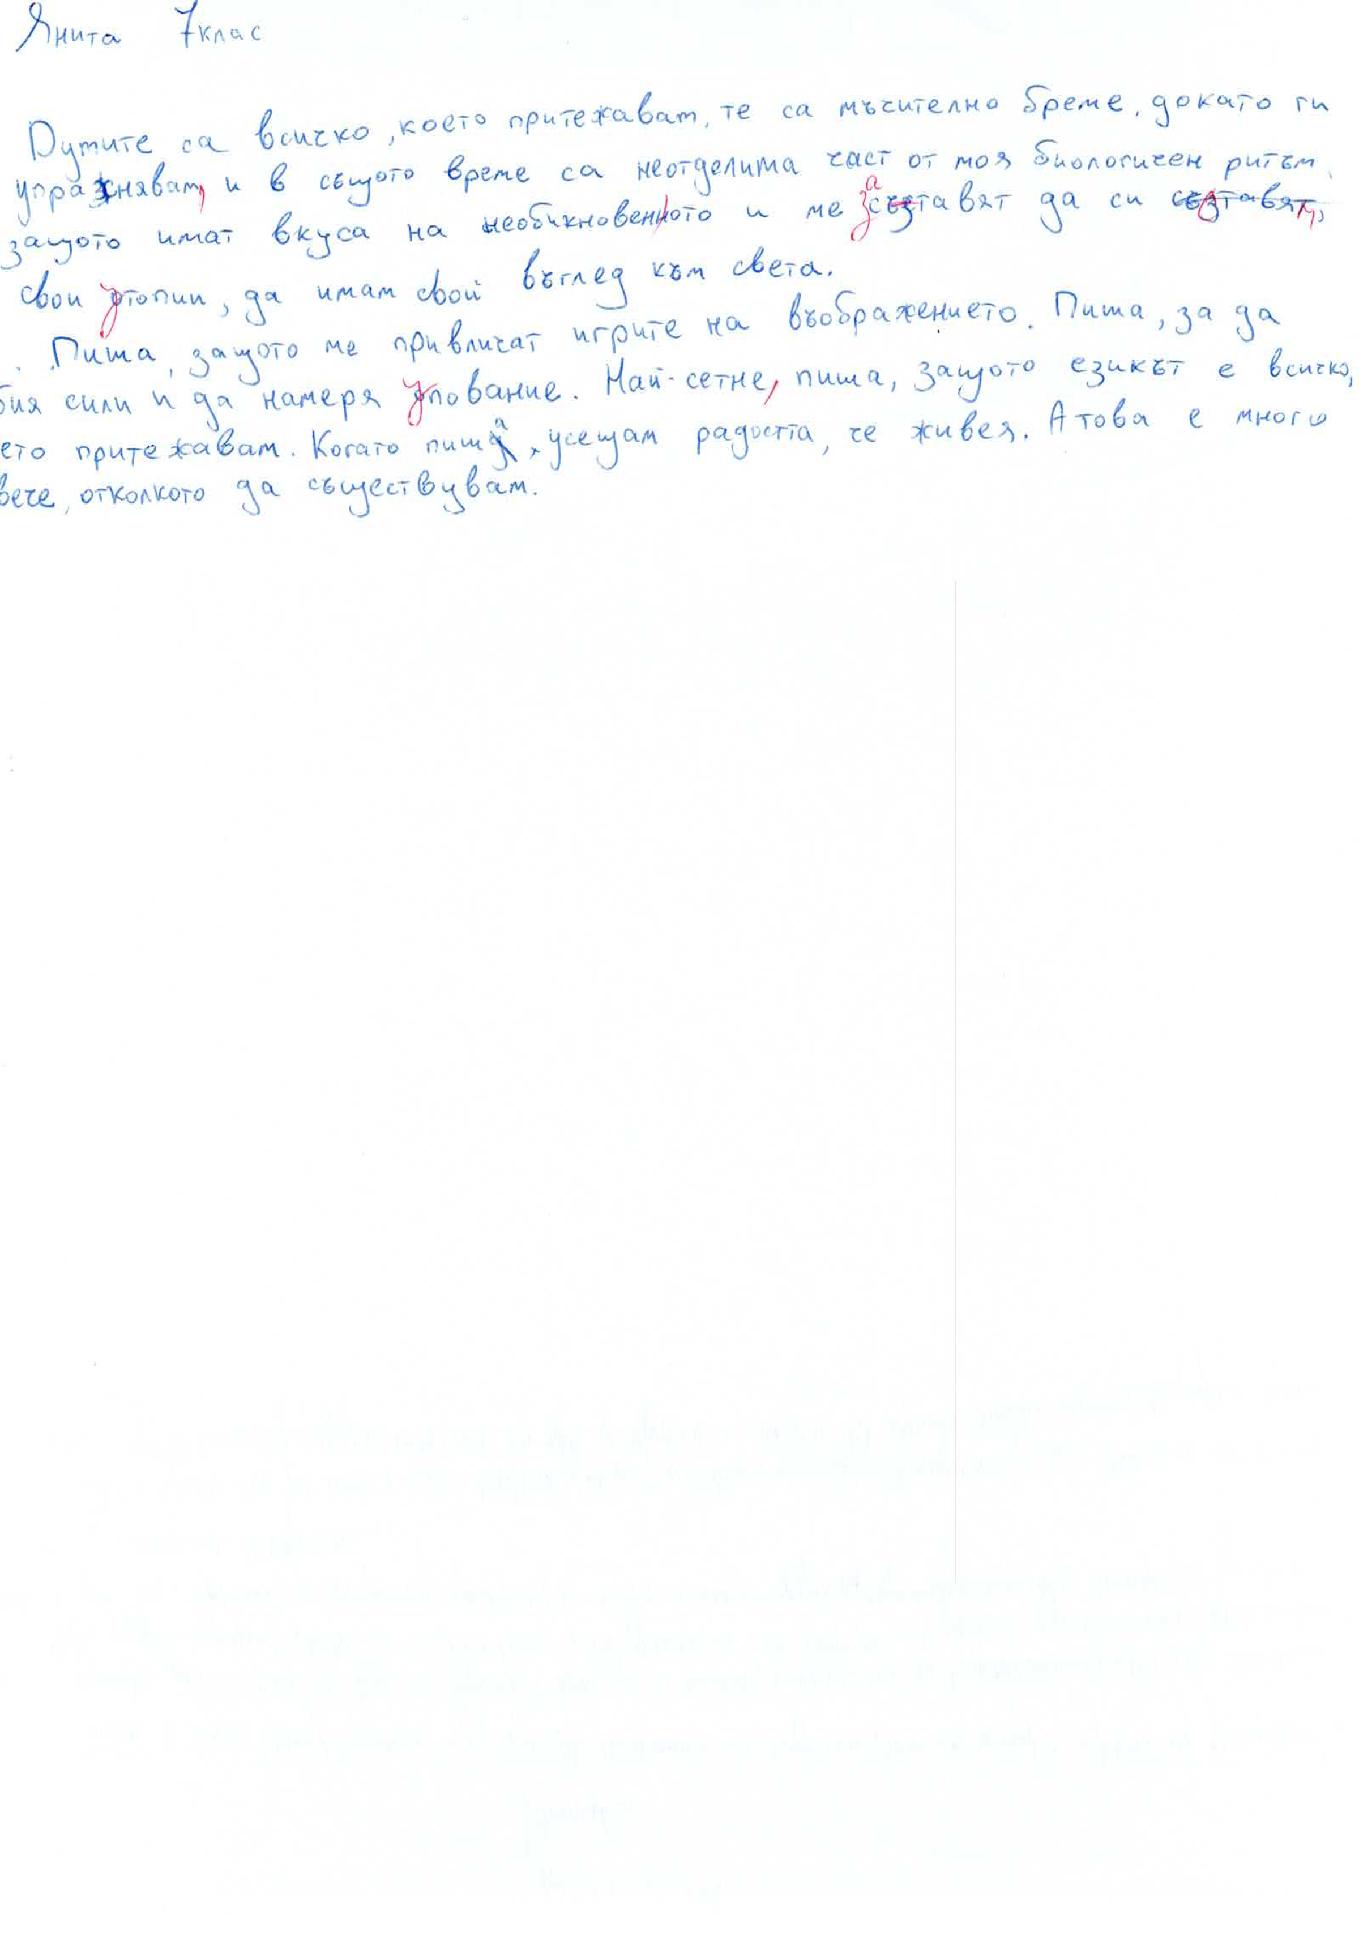 Янита 7клас
Думите са всичко, което притежавам, те са мъчително бреме, докато ги
упражнявам, и в същото време са неотделима част от моя биологичен ритъм,
защото имат вкуса на необикновенното и ме заставят да си
свои утопии, да имам свой възглед към света.
Пиша, защото ме привличат игрите на въображението. Пиша, за да
бия сили и да намеря упование. Най-сетне, пиша, защото езикът е всичко,
ето притежавам. Когато пиша, усещам радостта, че живея. А това е много
вече, отколкото да съществувам.